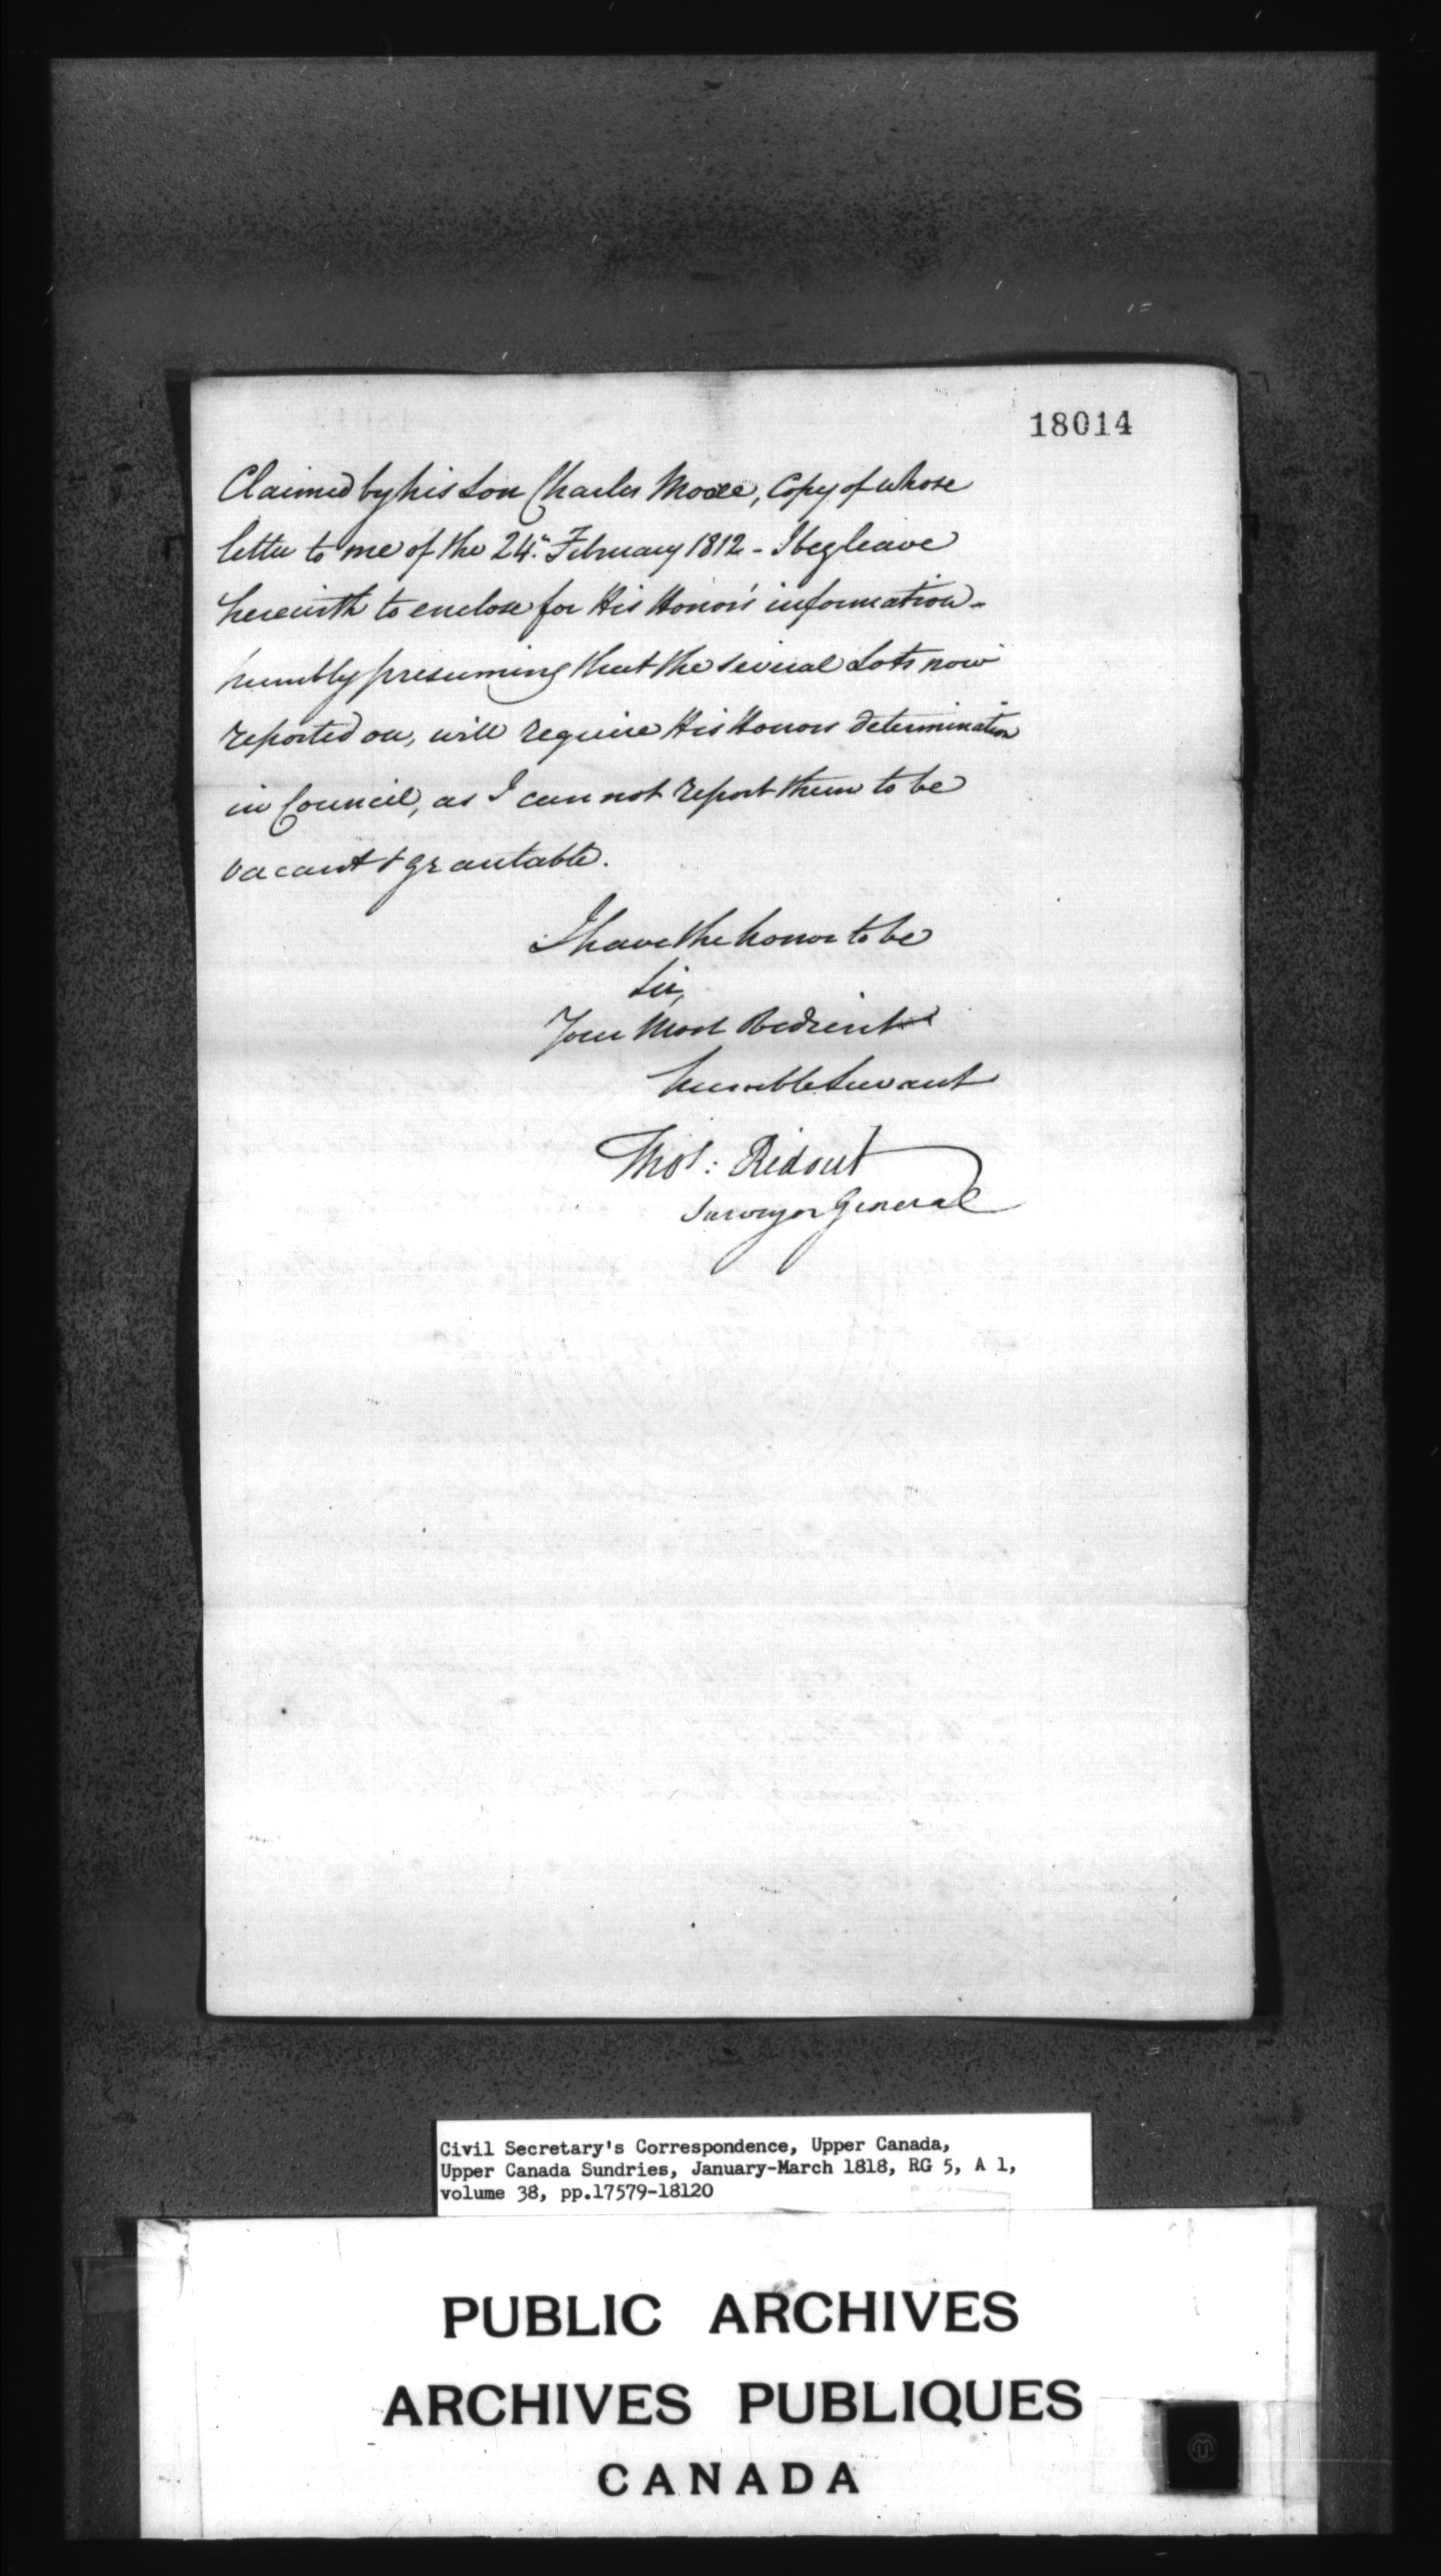 18014
Claimed by his Son Charles Moore, Copy of whose
letter to me of the 24th. February 1812 - I beg leave
herewith to enclose for His Honor's information -
humbly presuming that the several Lots now
reported on, will require His Honors determination
in Council, as I can not report them to be
vacant & grantable.
I have the honor to be
Sir,
Your Most Obedient
humble Servant
Thos: Ridout
Surveyor General
Civil Secretary's Correspondence, Upper Canada,
Upper Canada Sundries, January-March 1818, RG 5, A 1,
volume 38, pp.17579-18120
PUBLIC ARCHIVES
ARCHIVES PUBLIQUES
CANADA